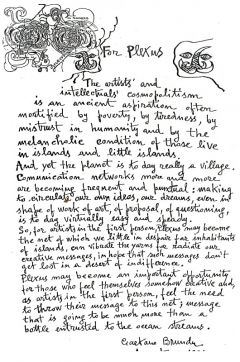 For Plexus
The artists' and
intellectuals' cosmopolitism
is an ancient aspiration often
mortified by poverty, by tiredness, by
mistrust in humanity and by the
melancholic condition of those live
in islands and little islands.
And yet the planet is to day really a village.
Communication networks more and more
are becoming fregnent and punctual: making
to circulate our own ideas, our dreams, even in
shape of work of art, of proposal, of questioning
is to day virtually easy and speedy.
So, for artists in the first person, Plexus may become
the net of which we little in despair for inhabitants
of islands, can vibrate the yarns for radiate our
creative messages, in hope that such messages don't
get lost in a desert of indifference.
Plexus may become an important opportunity
for those who feel themselves somehow creative and,
as artists in the first person, feel the need
to throw their message to this net; message
that is going to be much more than a
bottle entrusted to the ocean streams.
Gaetano Brundu